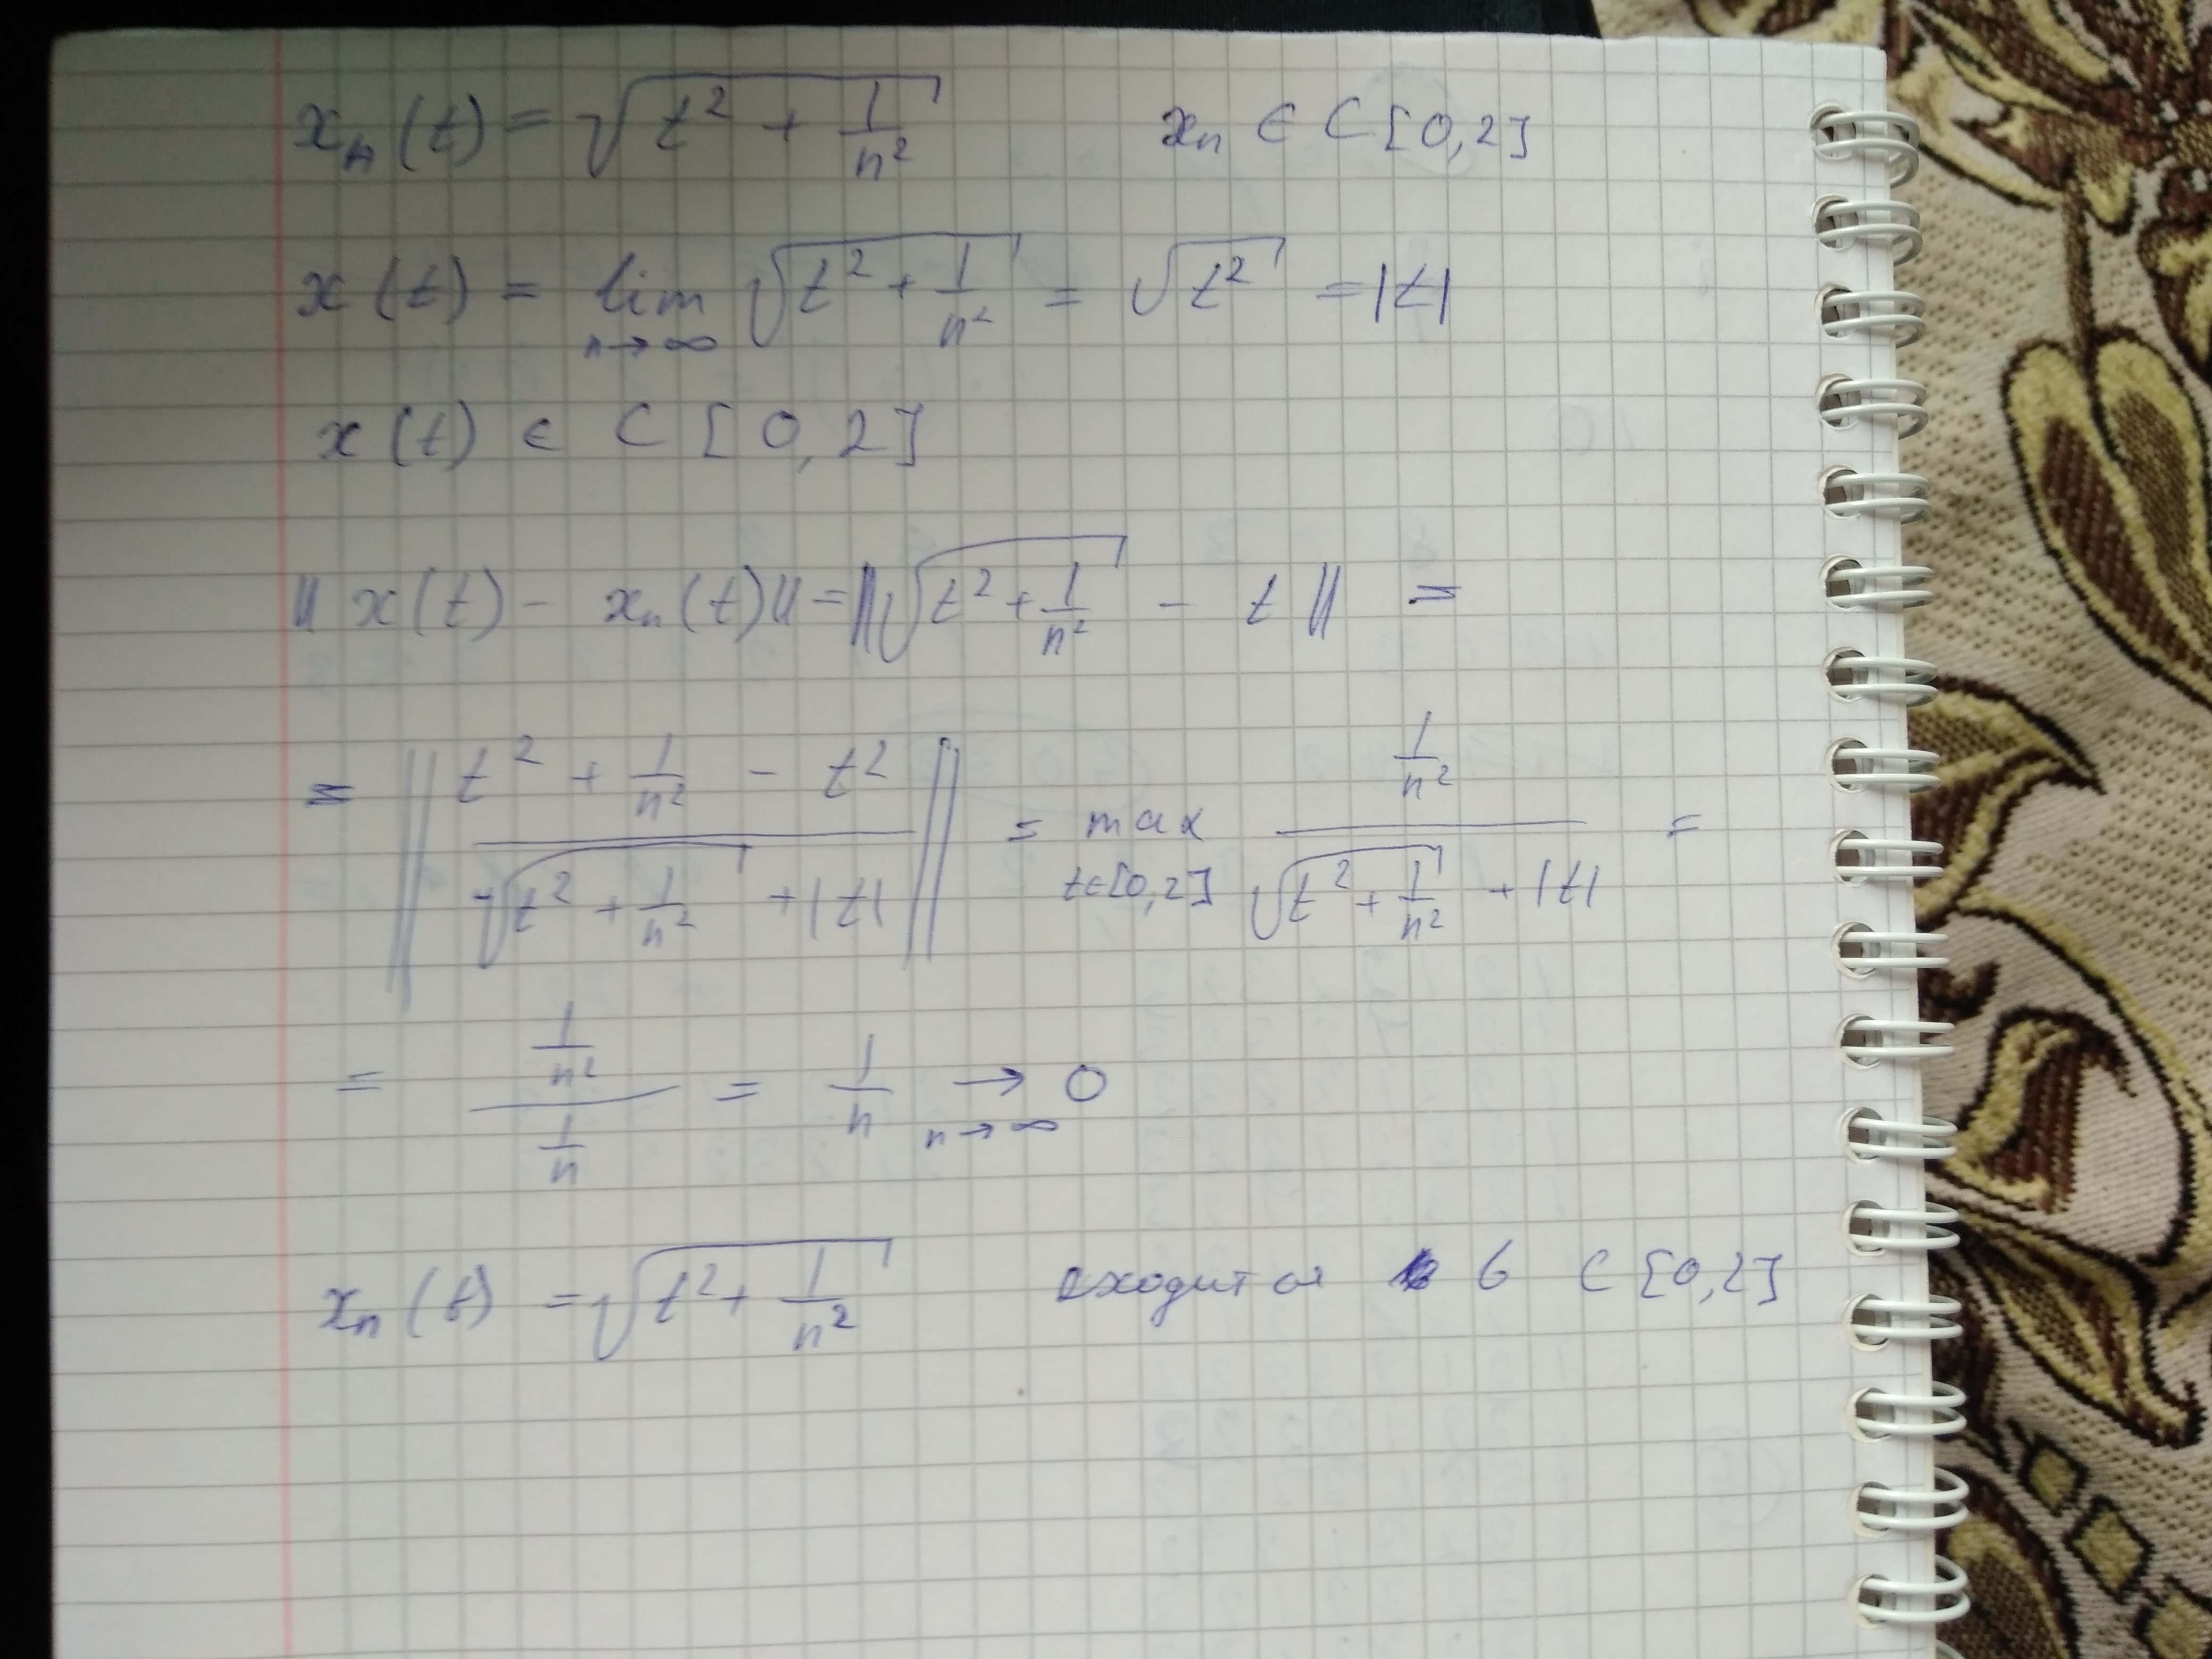 xₙ(t) = √(t² + 1/n²) xₙ ∈ C[0,2]
x(t) = lim n→∞ √(t² + 1/n²) = √(t²) = |t|
x(t) ∈ C[0,2]
‖x(t) - xₙ(t)‖ = ‖√(t² + 1/n²) - t‖ =
= ‖(t² + 1/n² - t²)/(√(t² + 1/n²) + |t|)‖ = max t∈[0,2] (1/n²)/(√(t² + 1/n²) + |t|) =
= (1/n²)/(1/n) = 1/n → 0 n→∞
xₙ(t) = √(t² + 1/n²) сходится в C[0,2]